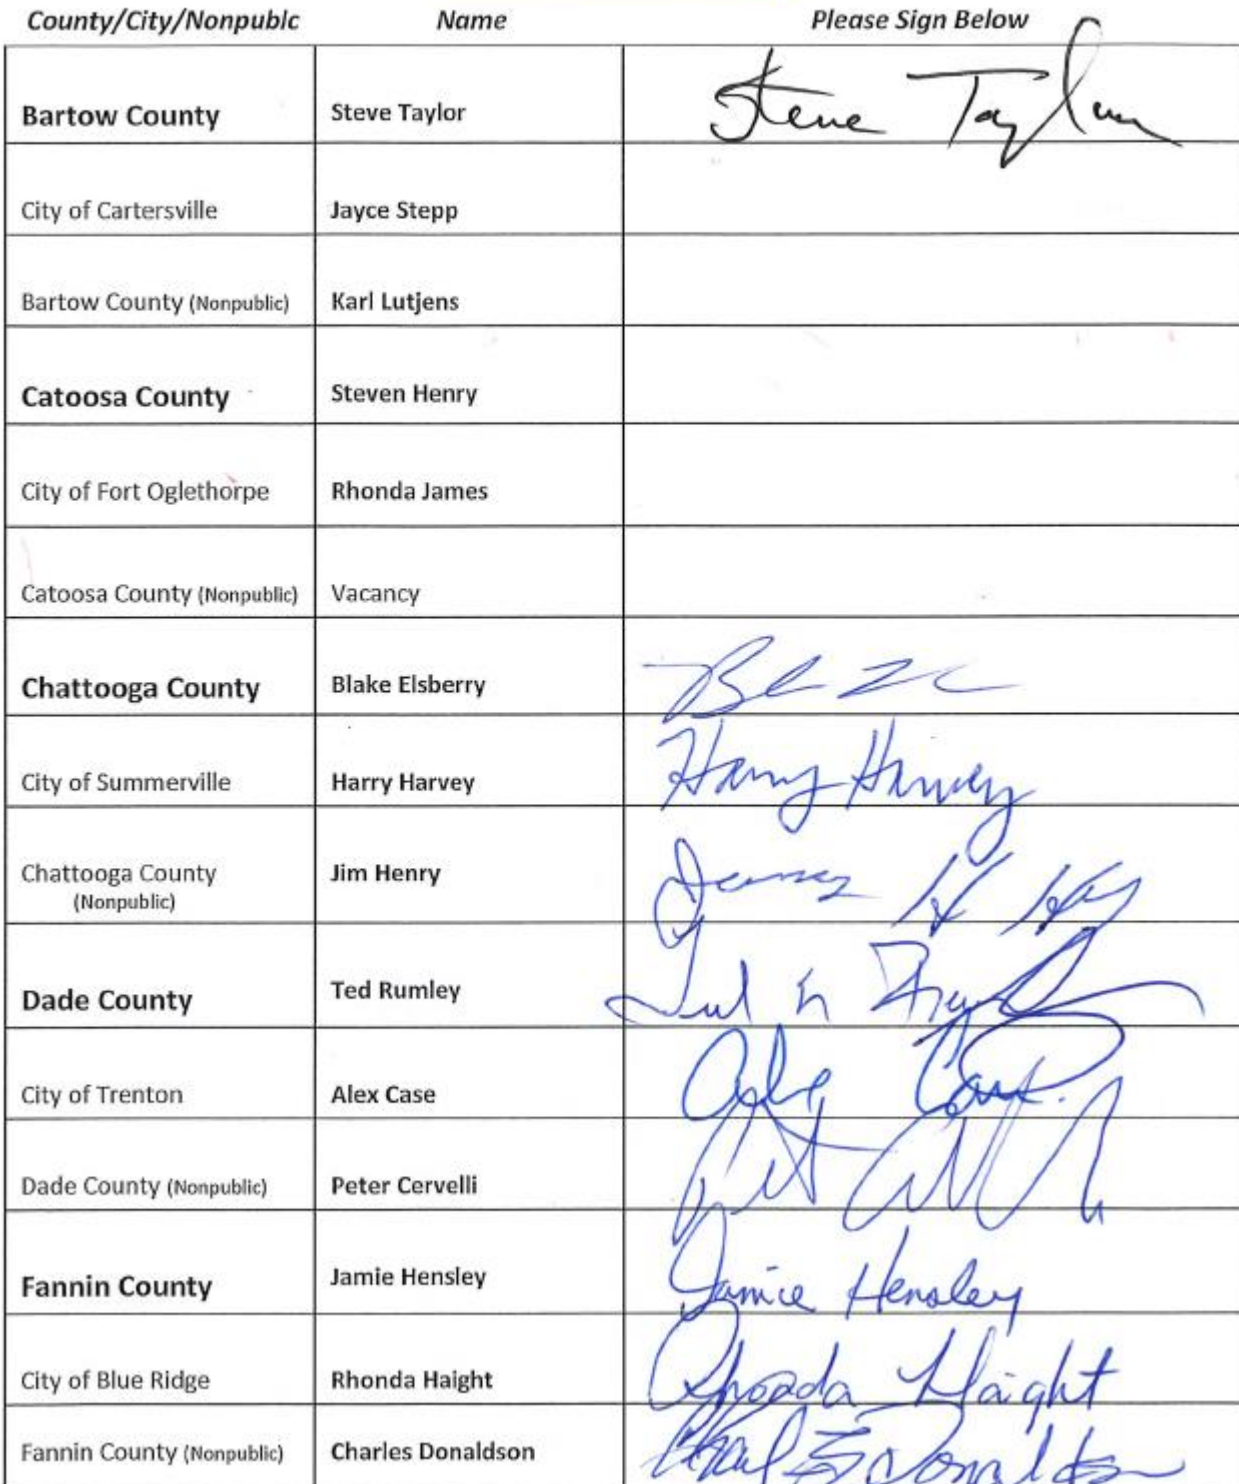 County/City/Nonpublc Name Please Sign Below
Bartow County Steve Taylor Steve Taylor
City of Cartersville Jayce Stepp
Bartow County (Nonpublic) Karl Lutjens
Catoosa County Steven Henry
City of Fort Oglethorpe Rhonda James
Catoosa County (Nonpublic) Vacancy
Chattooga County Blake Elsberry
City of Summerville Harry Harvey Harry Harvey
Chattooga County Jim Henry James H
(Nonpublic)
Dade County Ted Rumley
City of Trenton Alex Case Alex Case
Dade County (Nonpublic) Peter Cervelli
Fannin County Jamie Hensley Jamie Hensley
City of Blue Ridge Rhonda Haight Rhonda Haight
Fannin County (Nonpublic) Charles Donaldson Donaldson